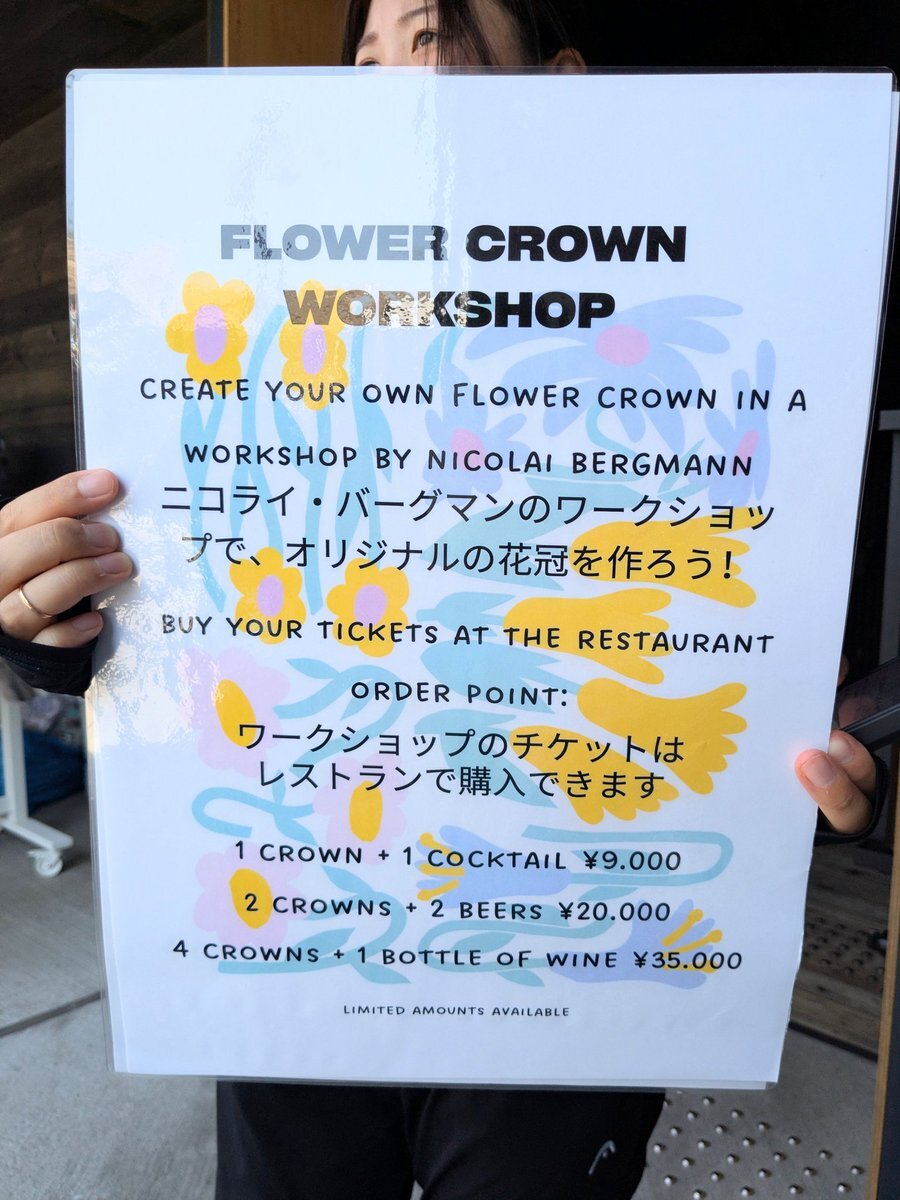 FLOWER CROWN
WORKSHOP
CREATE YOUR OWN FLOWER CROWN IN A
WORKSHOP BY NICOLAI BERGMANN
ニコライ・バーグマンのワークショッ
プで、オリジナルの花冠を作ろう!
BUY YOUR TICKETS AT THE RESTAURANT
ORDER POINT:
ワークショップのチケットは
レストランで購入できます
1 CROWN + 1 COCKTAIL ¥9.000
2 CROWNS + 2 BEERS ¥20.000
4 CROWNS + 1 BOTTLE OF WINE ¥35.000
LIMITED AMOUNTS AVAILABLE